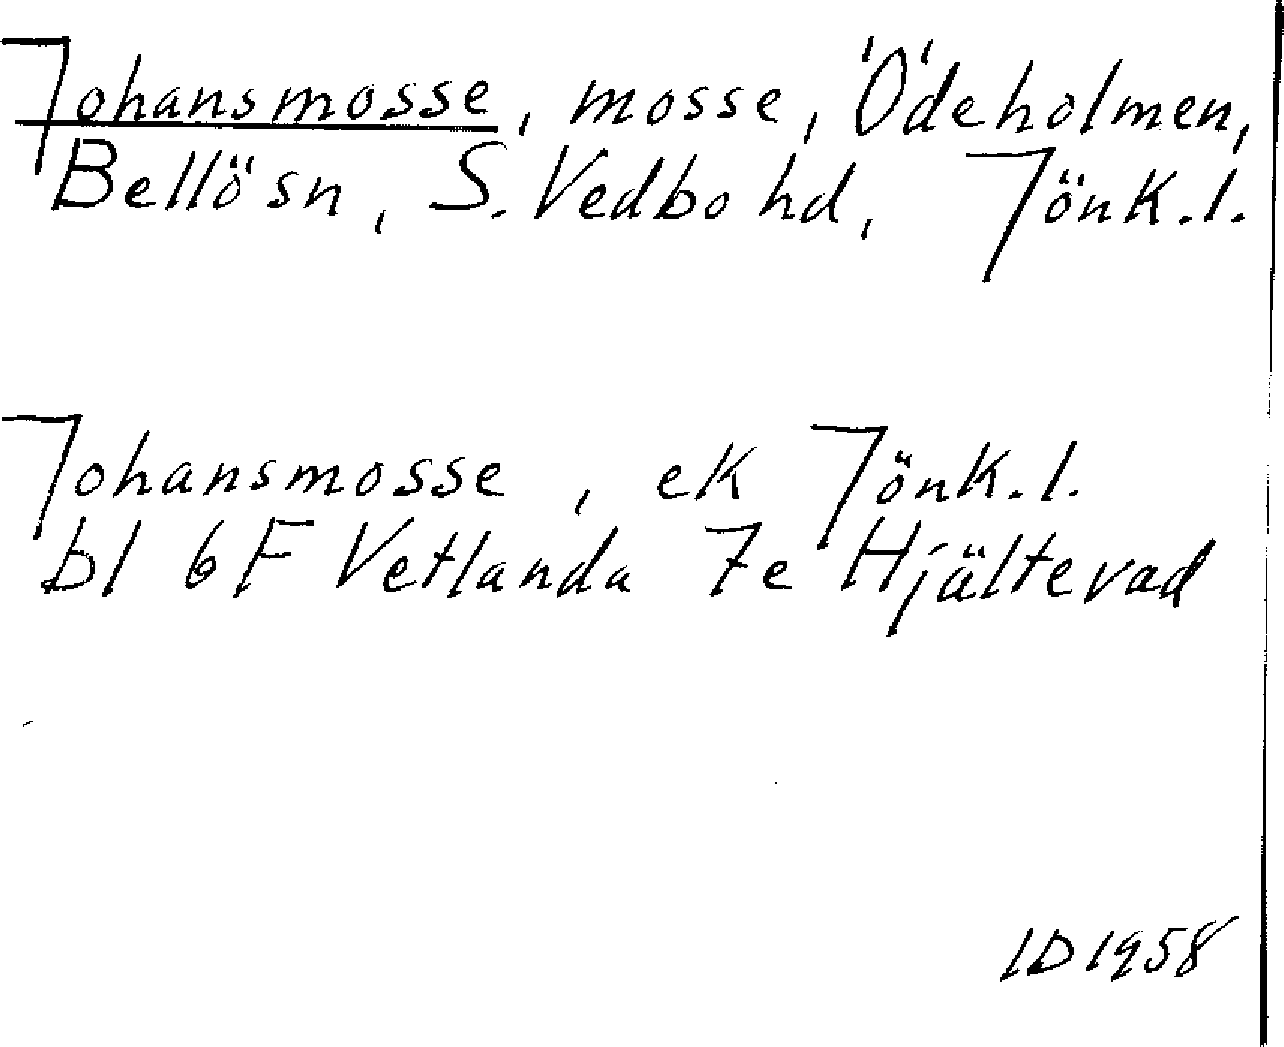 Johansmosse, mosse, Ödeholmen,
Bellö sn, S. Vedbo hd, Jönk. l.
Johansmosse, ek Jönk. l.
bl 6 F Vetlanda 7e Hjältevad
ID 1958